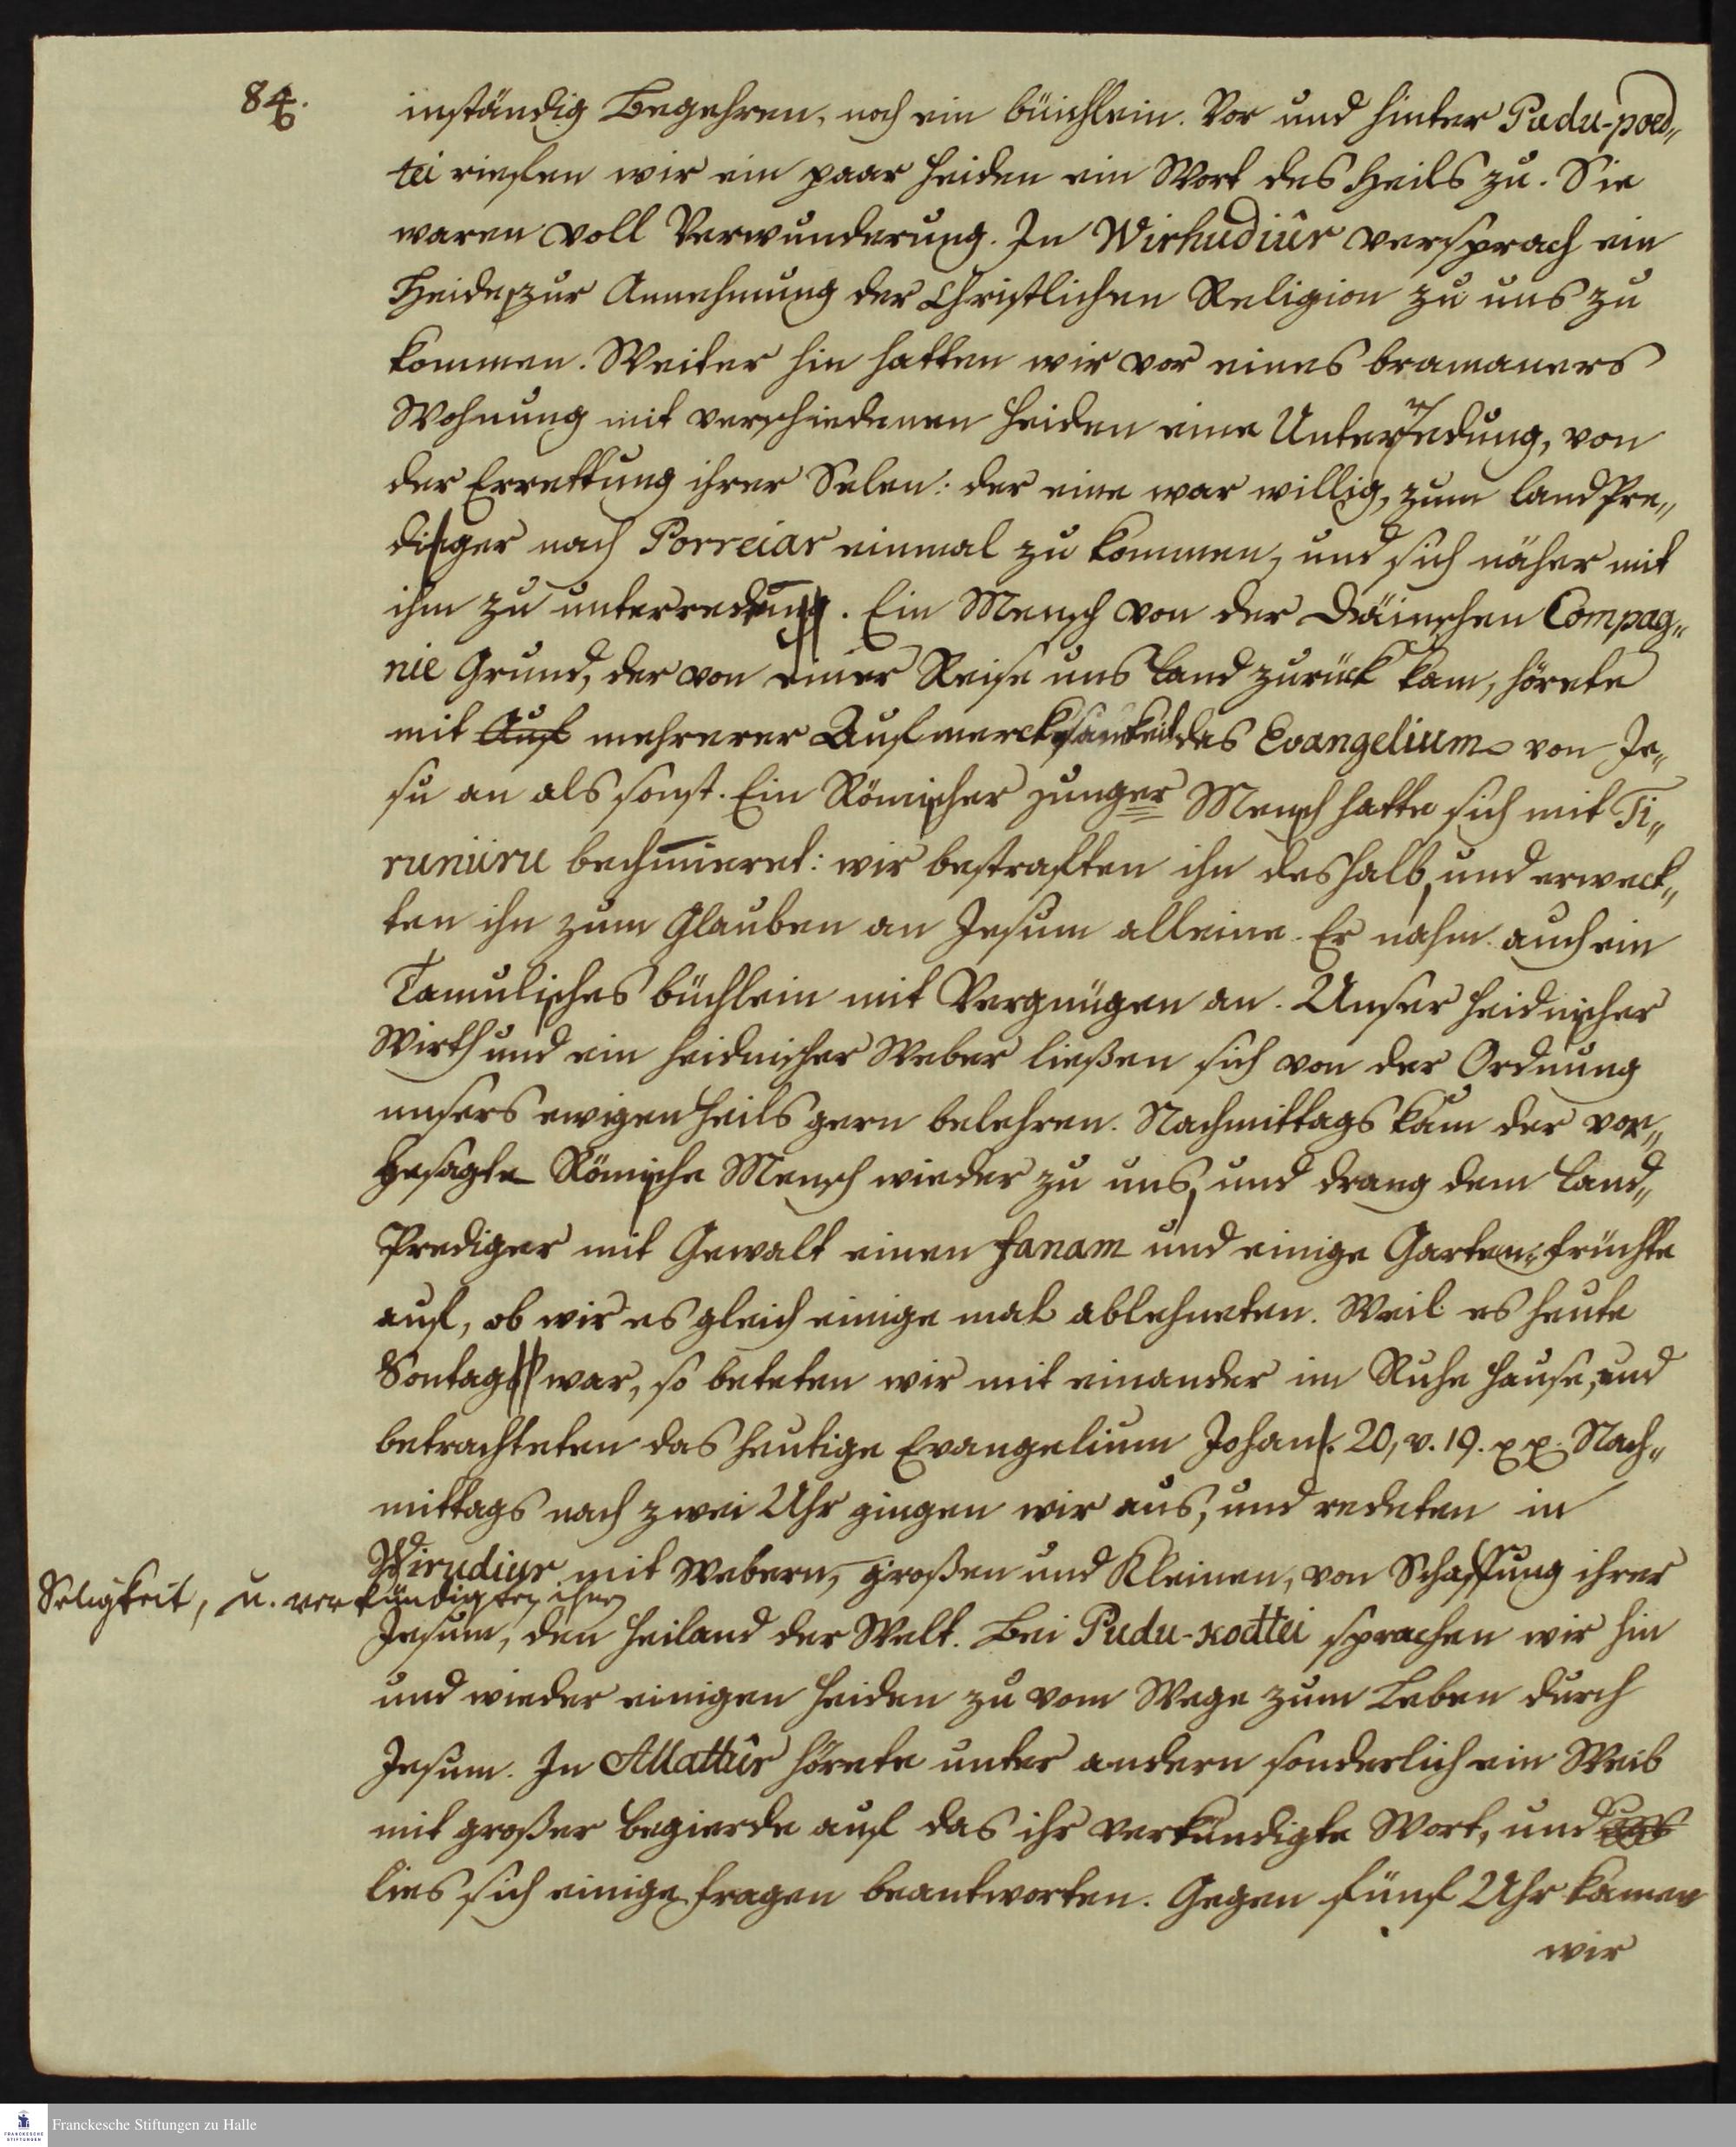 84.
inständig Begehren, noch ein büichlein. Vor und hinter Pudu-poed„
tei rieffen wir ein paar Heiden ein Wort des Heils zu. Sie
waren voll Verwunderung. In Wirhudiûr versprach ein
Heide, zur Annehmung der Christlichen Religion zu uns zu
kommen. Weiter hin hatten wir vor eines bramaners
Wohnung mit verschiedenen Heiden eine Unterredung, von
der Errettung ihrer Selen: der eine war willig, zum landPre„
diger nach Porreiar einmal zu kommen, und sich näher mit
ihm zu unterreden. Ein Mensch von der Däinschen Compag„
nie Grund, der von einer Reise uns Land zurück kam, hörete
mit Auf mehrerer Aufmercksamkeit das Evangelium von Je„
su an als sonst. Ein Römischer junger Mensch hatte sich mit Ti„
runüru beschmieret: wir bestraften ihn deshalb, und erweck„
ten ihn zum Glauben an Jesum alleine. Er nahm auch ein
Tamulisches büchlein mit Vergnügen an. Unser heidnischer
Wirth und ein heidnischer Weber ließen sich von der Ordnung
unsers ewigen Heils gern belehren. Nachmittags kam der vor„
gesagte Römische Mensch wieder zu uns, und drang dem Land„
Prediger mit Gewalt einen fanam und einige Garten früchte
auf, ob wir es gleich einige mal ablehneten. Weil es heute
Sontag war, so beteten wir mit einander im Ruhe Hause, und
betrachteten das heutige Evangelium Johan. 20, v. 19. pp. Nach„
mittags nach zwei Uhr gingen wir aus, und redeten in
Wirudiur mit Webern, großen und Kleinen, von Schaffung ihrer
Seligkeit, u. verkündigten ihnen
Jesum, den Heiland der Welt. Bei Pudu-kottei sprachen wir hin
und wieder einigen Heiden zu vom Wege zum Leben durch
Jesum. In Allattûr hörete unter andern sonderlich ein Weib
mit großer begierde auf das ihr verkündigte Wort, und
lies sich einige fragen beantworten. Gegen fünf Uhr kamen
wir
Franckesche Stiftungen zu Halle
FRANCKESCHE
STIFTUNGEN